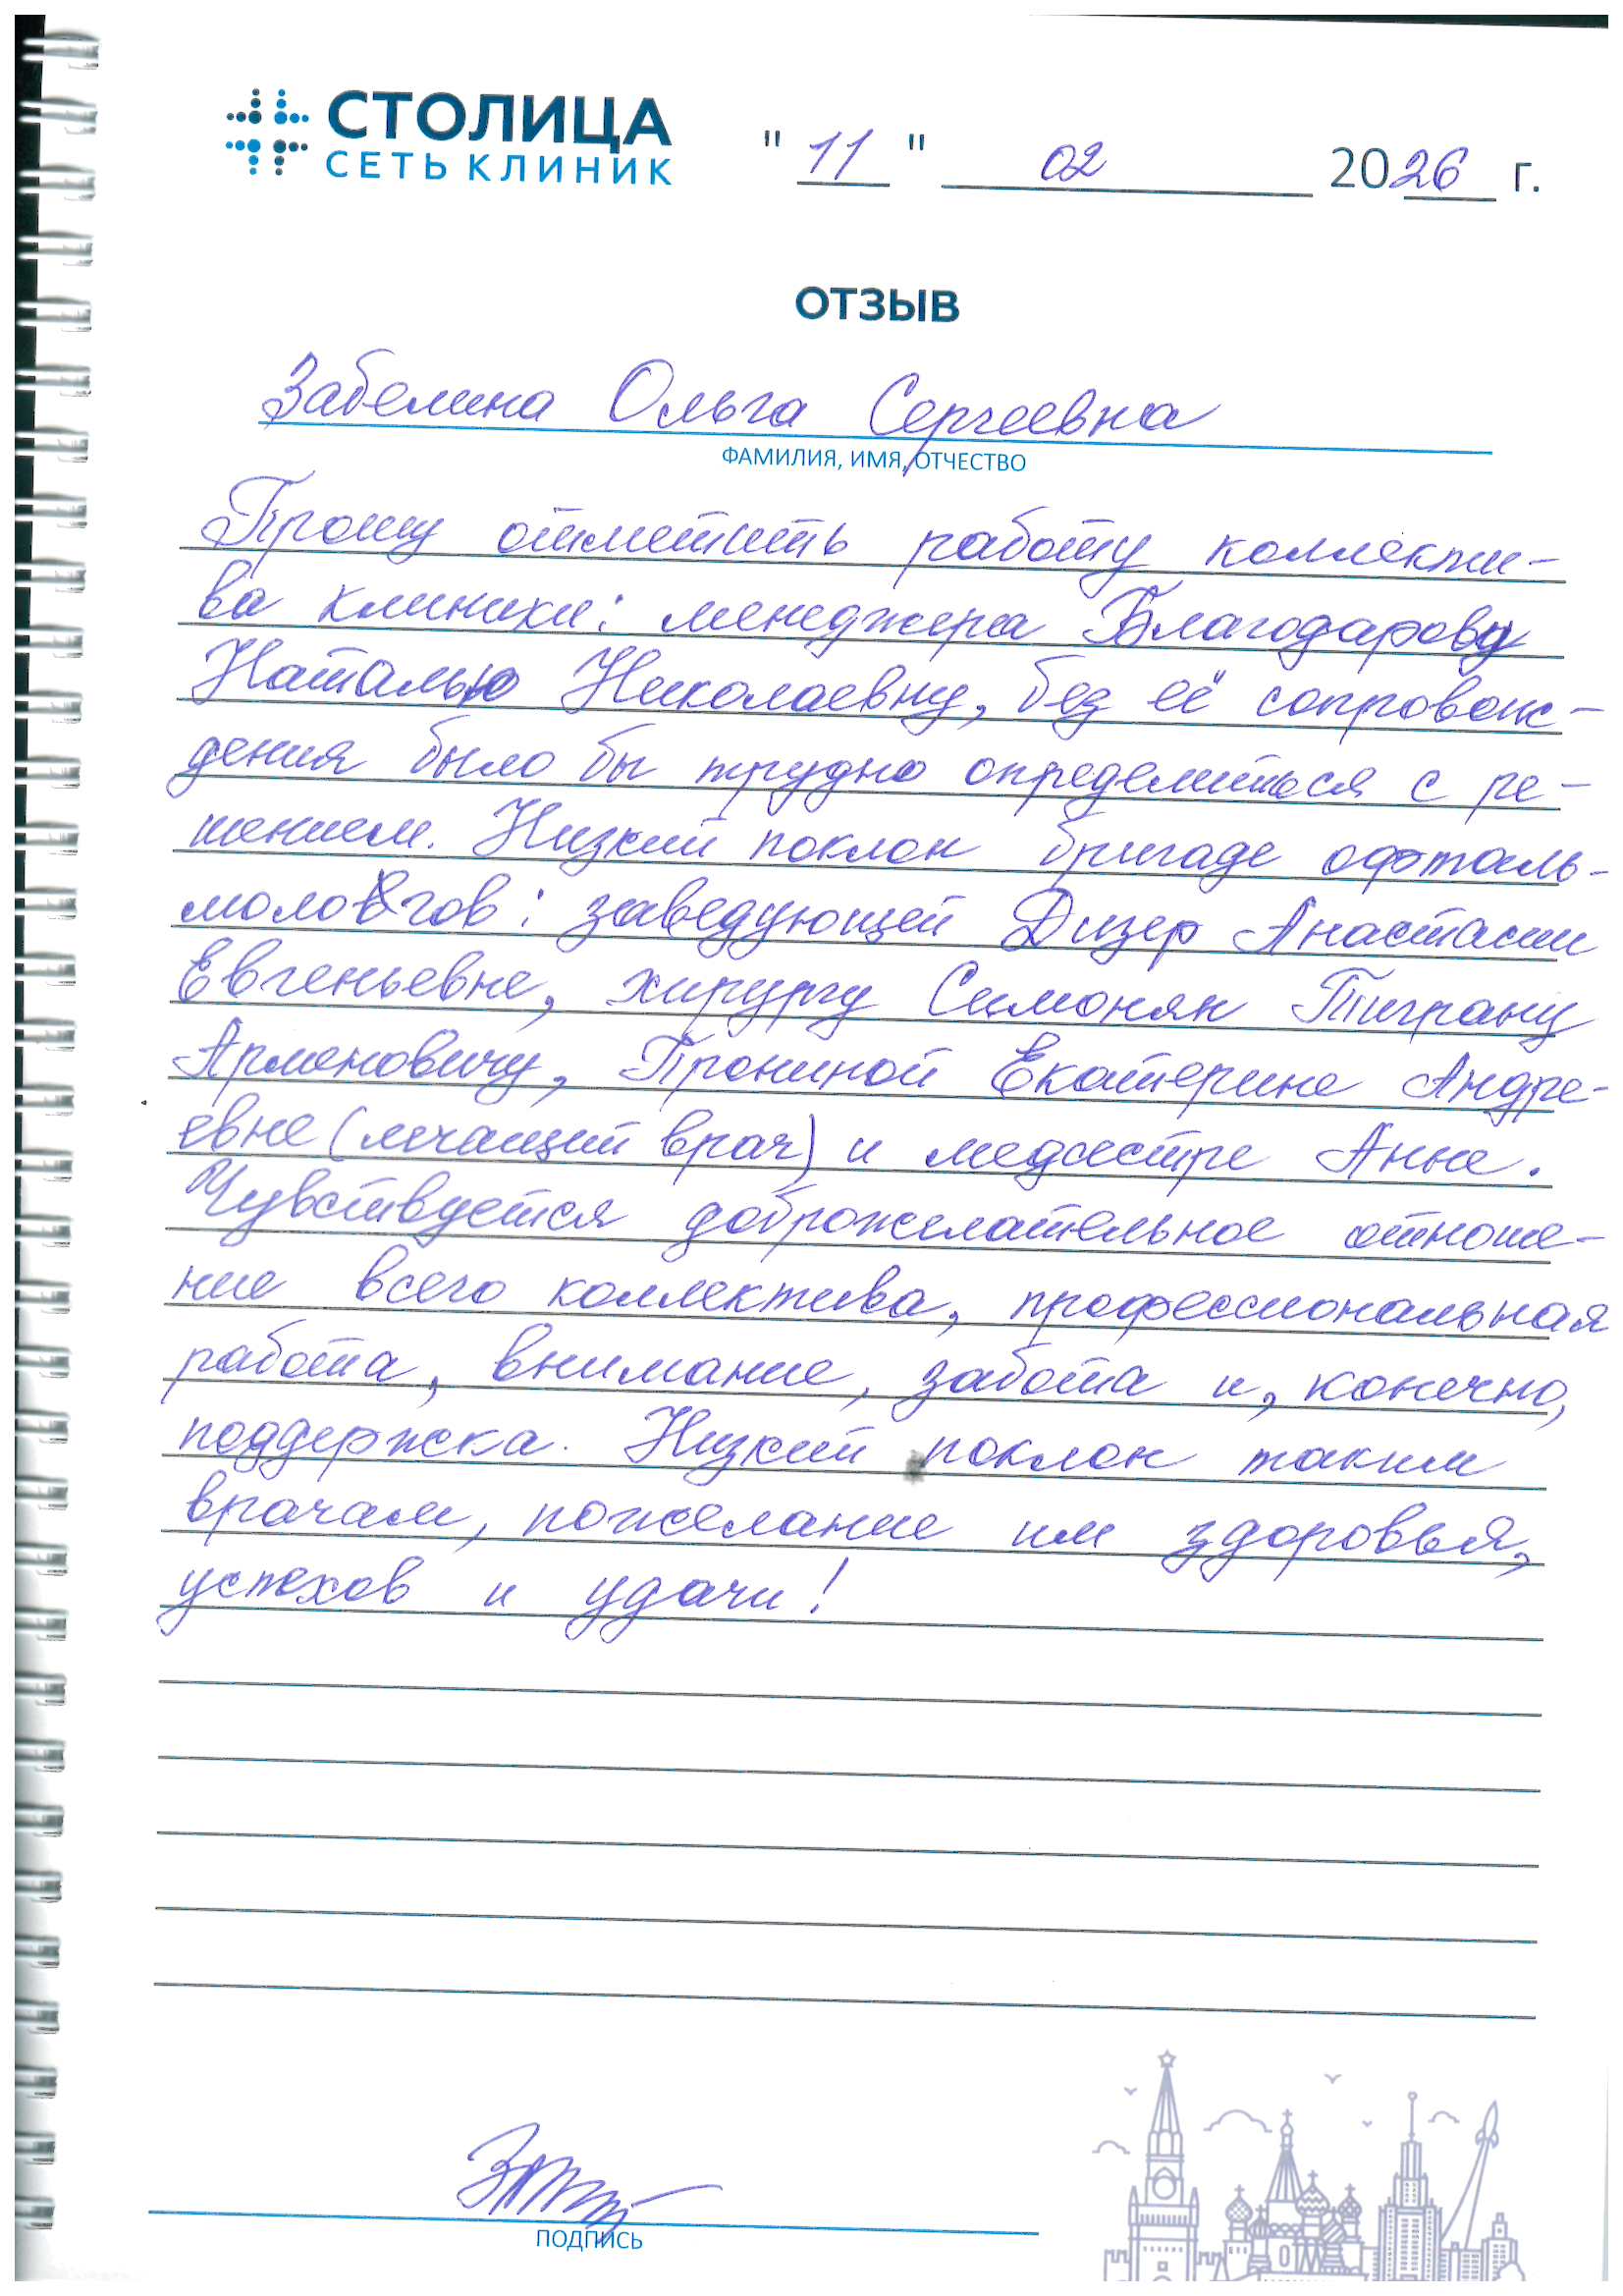 СТОЛИЦА
СЕТЬ КЛИНИК
" 11 " 02 2026 г.
ОТЗЫВ
Забелина Ольга Сергеевна
ФАМИЛИЯ, ИМЯ, ОТЧЕСТВО
Прошу отметить работу коллекти-
ва клиники: менеджера Благодарову
Наталью Николаевну, без её сопровож-
дения было бы трудно определиться с ре-
шением. Низкий поклон бригаде офталь-
мологов: заведующей Дизер Анастасии
Евгеньевне, хирургу Симонян Тиграну
Арменовичу, Прониной Екатерине Андре-
евне (лечащий врач) и медсестре Анне.
Чувствуется доброжелательное отноше-
ние всего коллектива, профессиональная
работа, внимание, забота и, конечно,
поддержка. Низкий поклон таким
врачам, пожелание им здоровья,
успехов и удачи!
ПОДПИСЬ